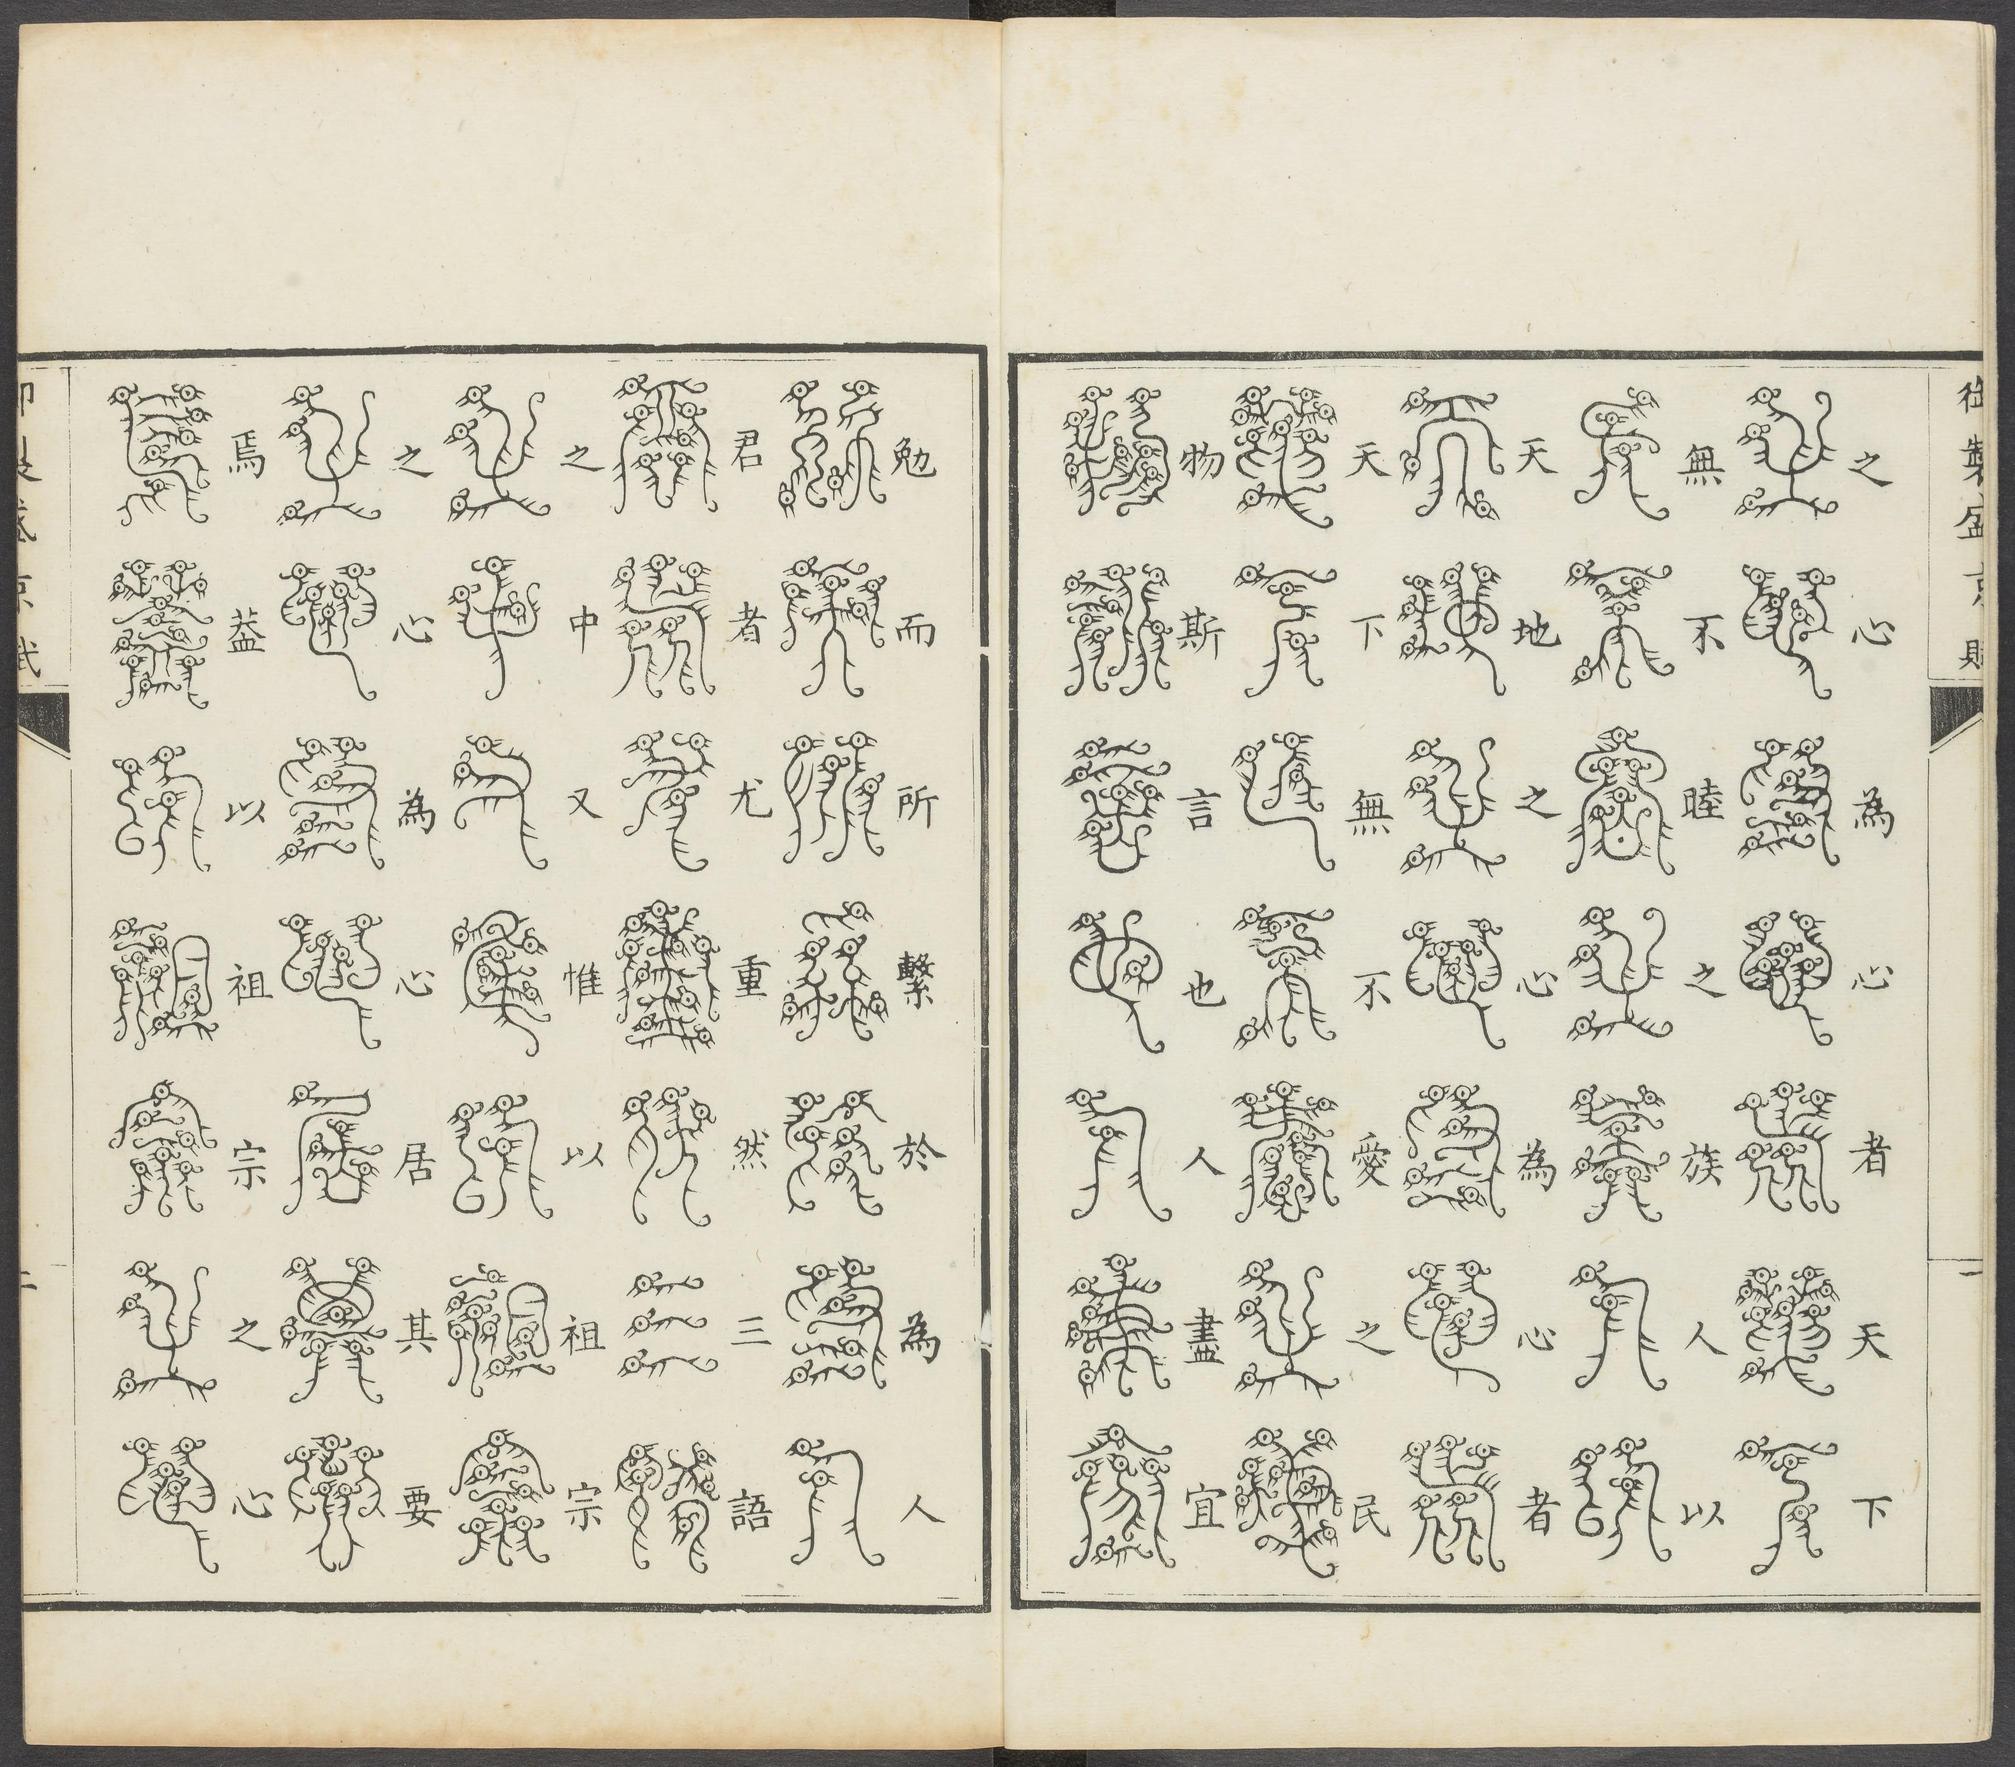 御製盛京賦
之心為心者天下
無不睦之族人以
天地之心為心者
天下無不愛之民
物斯言也人盡宜
勉而所繫於為人
君者尤重然三語
之中又惟以祖宗
之心為心居其要
焉蓋以祖宗之心